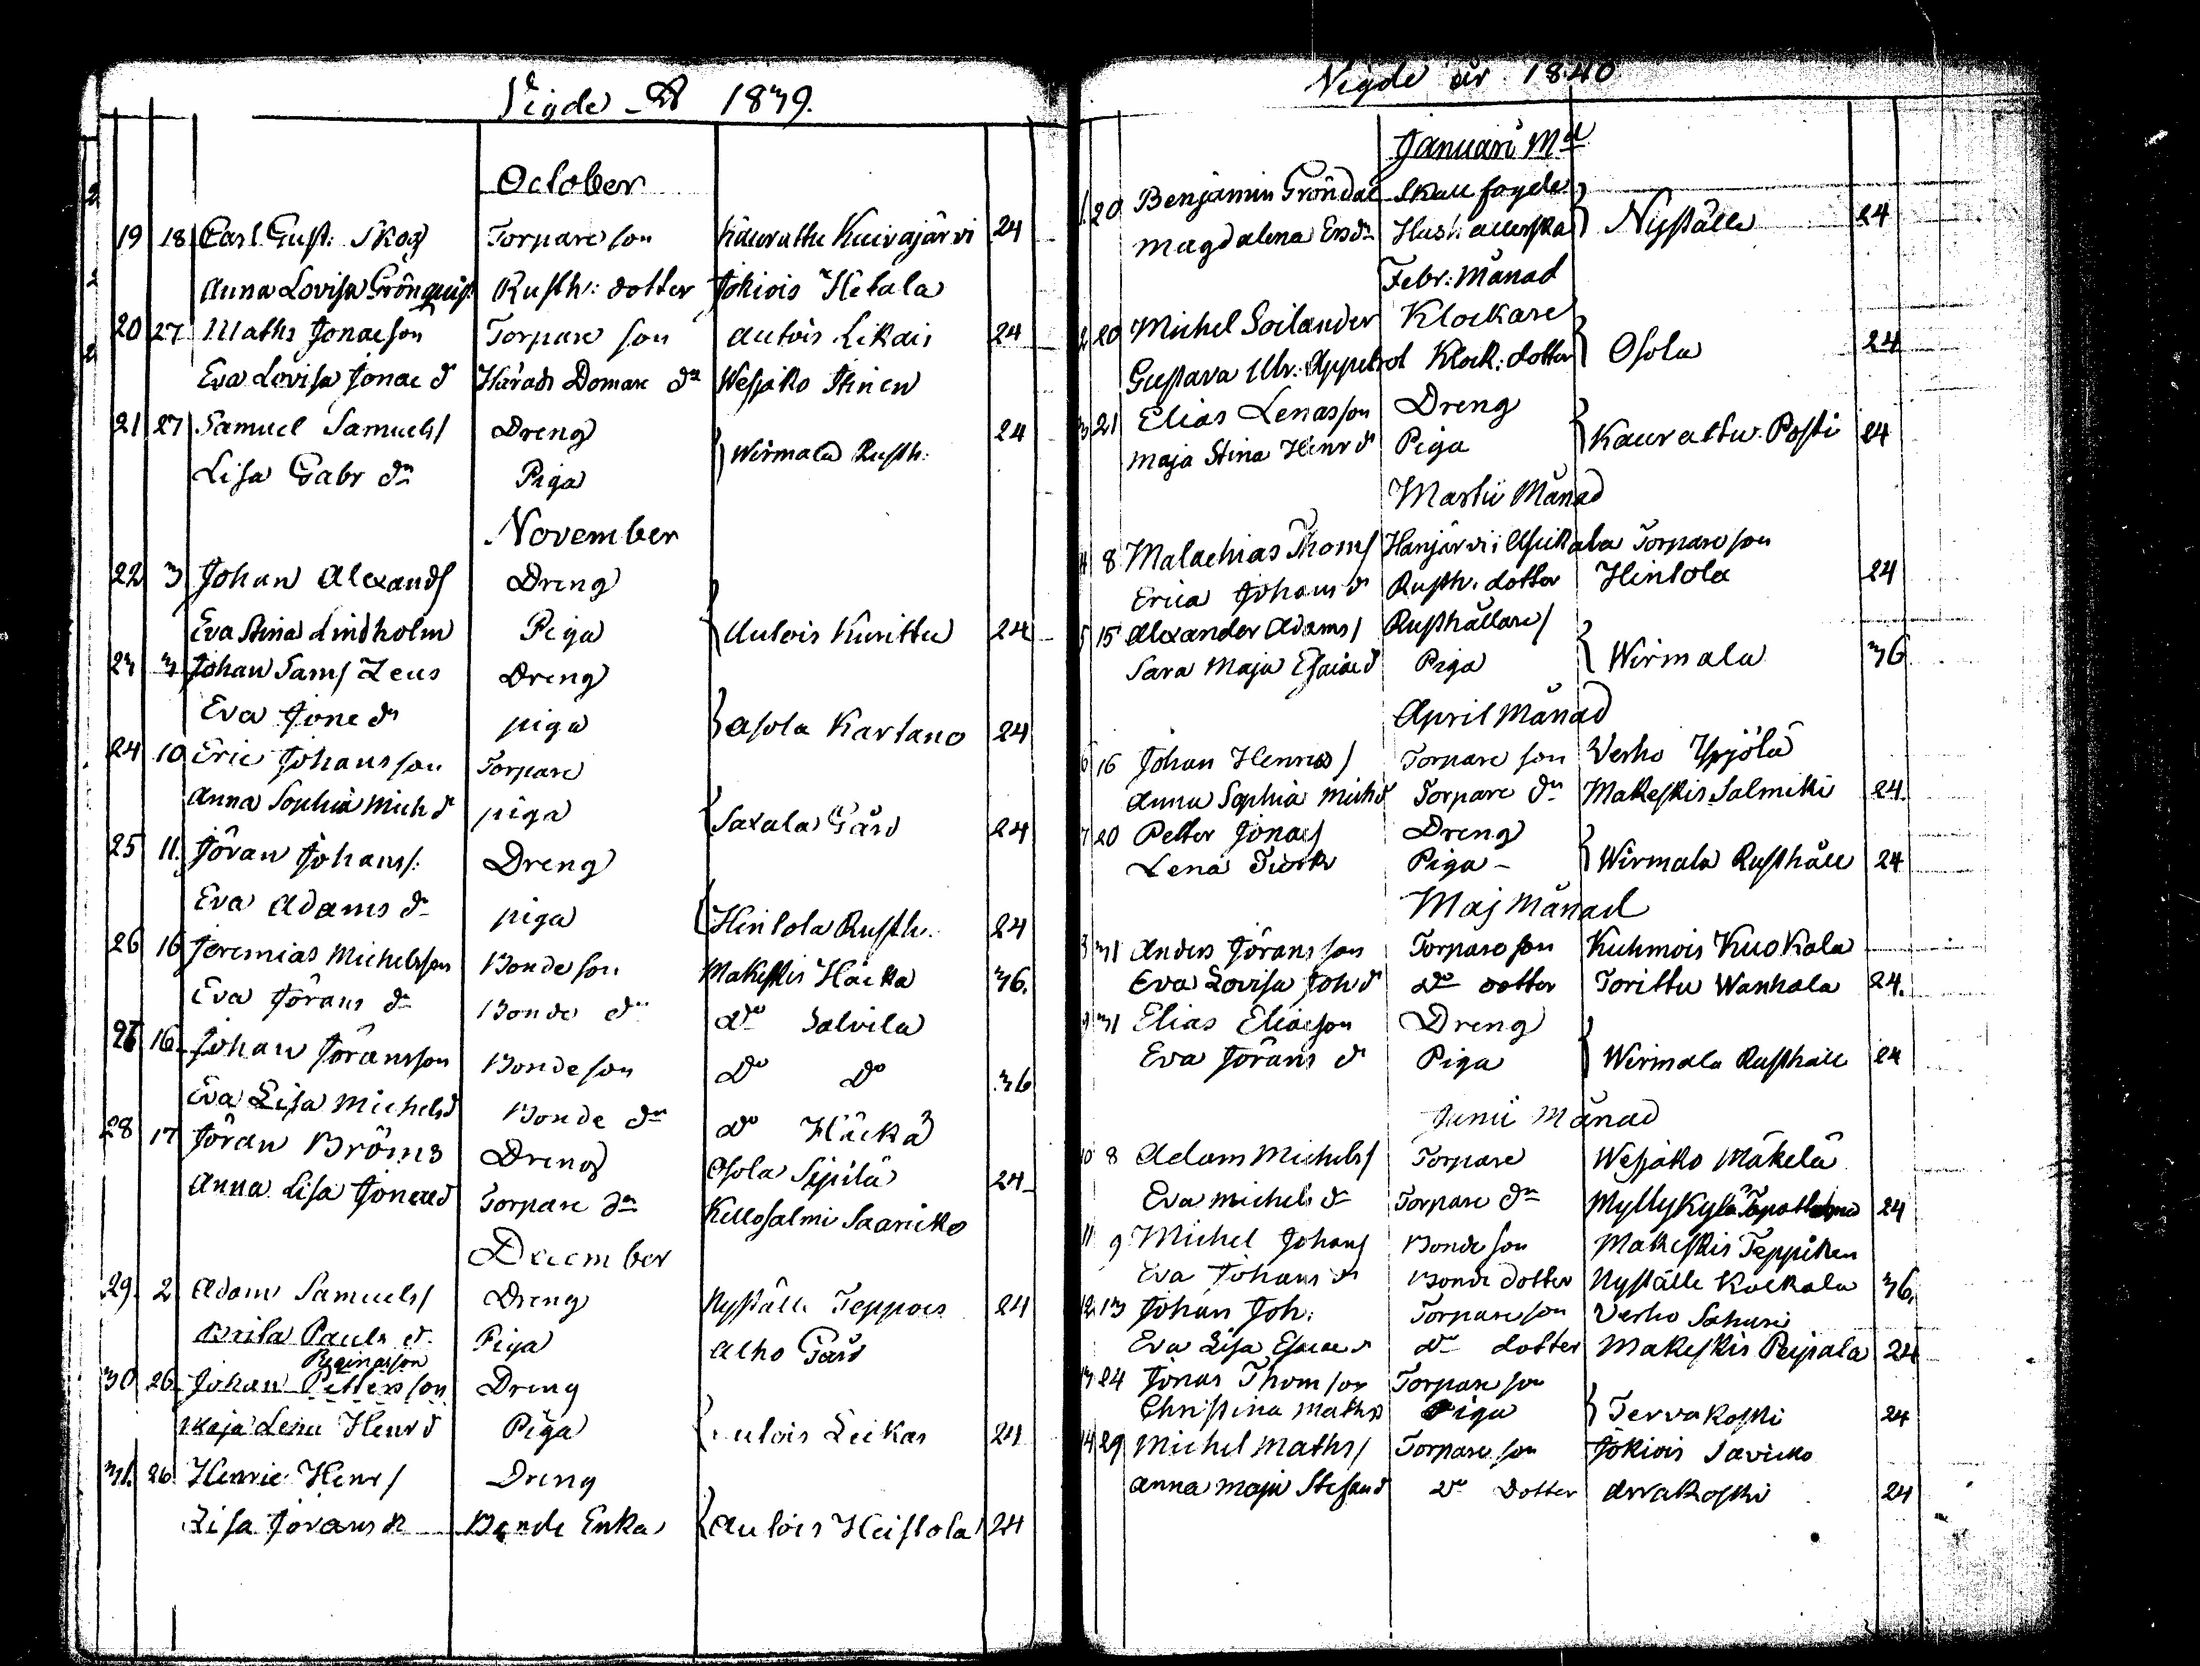 Vigde År 1839.
October
19 18 Carl Gust: Skog Torpare son Kaurattu Kuivajärvi 24
Anna Lovisa Grönquist Rusth: dotter Jokiois Hetala
20 27 Maths Jonaeson Torpare son Autois Likais 24
Eva Lovisa Jonae dr Härads Domare dr Wesjako
21 27 Samuel Samuels/ Dreng } Wirmala Rusth: 24
Lisa Gabr dr Piga
November
22 3 Johan Alexands/ Dreng
Eva Stina Lindholm Piga } Autois Kurittu 24
23 3 Johan Sams/ Zeus Dreng
Eva Jone dr piga } Asola Kartano 24
24 10 Eric Johansson Torpare
Anna Sophia Mich dr piga { Saxala Gård 24
25 11. Jöran Johans/: Dreng
Eva Adams dr piga { Hintola Rusth. 24
26 16 Jeremias Michelsson Bonde son Makeskis Häcka 36.
Eva Jörans dr Bonde dr do Salvila
27 16 Johan Jöransson Bonde son do do 36
Eva Lisa Michelsd Bonde dr do Häckä
28 17 Jöran Bröms Dreng Osola Sipilä 24
Anna Lisa Jonaed Torpare dr Kellosalmi Saaricko
December
29. 2 Adam Samuels/ Dreng Nyställe Teppois 24
Brita Pauls d. Piga Alho Gård
Reginasson
30 26 Johan Pettersson Dreng
Maja Lena Henr d Piga { Autois Leikas 24
31. 26 Henric Henr/ Dreng
Lisa Jörans dr Bonde Enka { Autois Heistola 24
Vigde år 1840
Januari Md
1. 20 Benjamin Gröndal Skall fogde
Magdalena Ersdr Hushallerska } Nyställe 24
Febr: Månad
2 20 Michel Soilander Klockare
Gustava Ulr: Appelrot Klock: dotter } Osola 24
3 21 Elias Lenasson Dreng
Maja Stina Henr d Piga } Kaurattu Posti 24
Martii Månad
4 8 Malachias Thoms/ Hanjärvi i Asikala Torpare son
Erica Johans dr Rusth. dotter Hintola 24
5 15 Alexander Adams/ Rusthållare/
Sara Maja Esaiaed Piga } Wirmala 36
April Månad
6 16 Johan Henrics/ Torpare son Verho Yrjölä
Anna Sophia Michd Torpare dr Makeskis Salmiki 24.
7 20 Petter Jonaes/ Dreng
Lena Turk Piga } Wirmala Rusthåll 24
Maj Månad
8 31 Anders Jöransson Torpare son Kuhmois Kuokala
Eva Lovisa Joh d do dotter Torittu Wanhala 24.
9 31 Elias Eliaeson Dreng
Eva Jörans d Piga } Wirmala Rusthåll 24
Junii Månad
10 8 Adam Michels/ Torpare Wesjako Mäkelä
Eva Michels dr Torpare dr Myllykylä 24
11 9 Michel Johans/ Bonde son Makeskis Teppiken
Eva Johans dr Bonde dotter Nyställe Kockala 36,
12. 13 Johan Joh: Torpare son Verho Sahuri
Eva Lisa Esaiae d do dotter Makeskis Peipala 24
13 24 Jonas Thomson Torpare son
Christina Mathsd Piga } Tervakoski 24
14 29 Michel Maths/ Torpare son Jokiois Savicko
Anna Maja Stefansd do Dotter Arrakoski 24